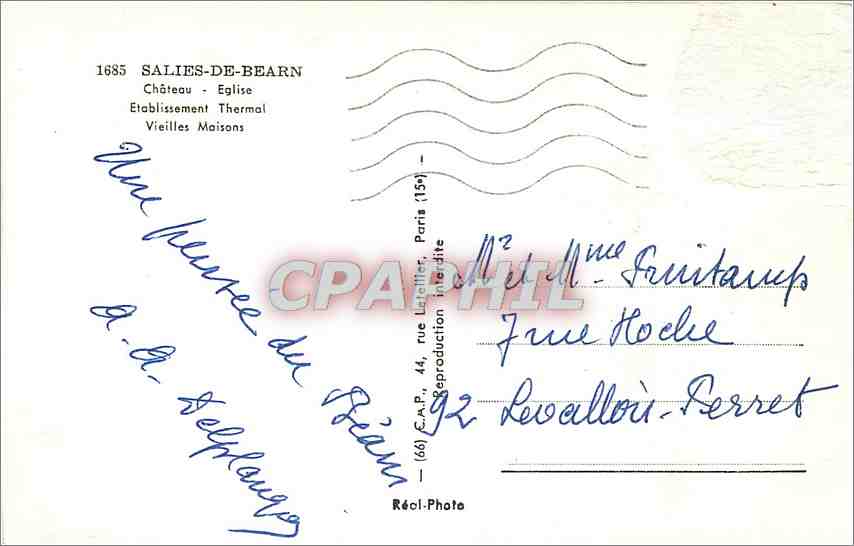 1685 SALIES-DE-BEARN
Château - Eglise
Etablissement Thermal
Vieilles Maisons
Une pensée du Béarn
a. a. Delplanque
CPAPHIL
(66) C.A.P., 44, rue Letellier, Paris (15e)
Reproduction interdite
Mr et Mme Printamp
7 rue Hoche
92 Levallois-Perret
Réal-Photo